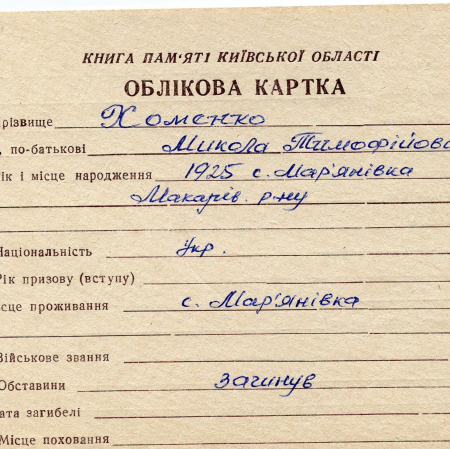 КНИГА ПАМ'ЯТІ КИЇВСЬКОЇ ОБЛАСТІ
ОБЛІКОВА КАРТКА
різвище Хоменко
, по-батькові Микола Тимофійови
ік і місце народження 1925 с. Мар'янівка
Макарів. р-ну
Національність Укр.
Рік призову (вступу)
сце проживання с. Мар'янівка
Військове звання
Обставини загинув
ата загибелі
Місце поховання